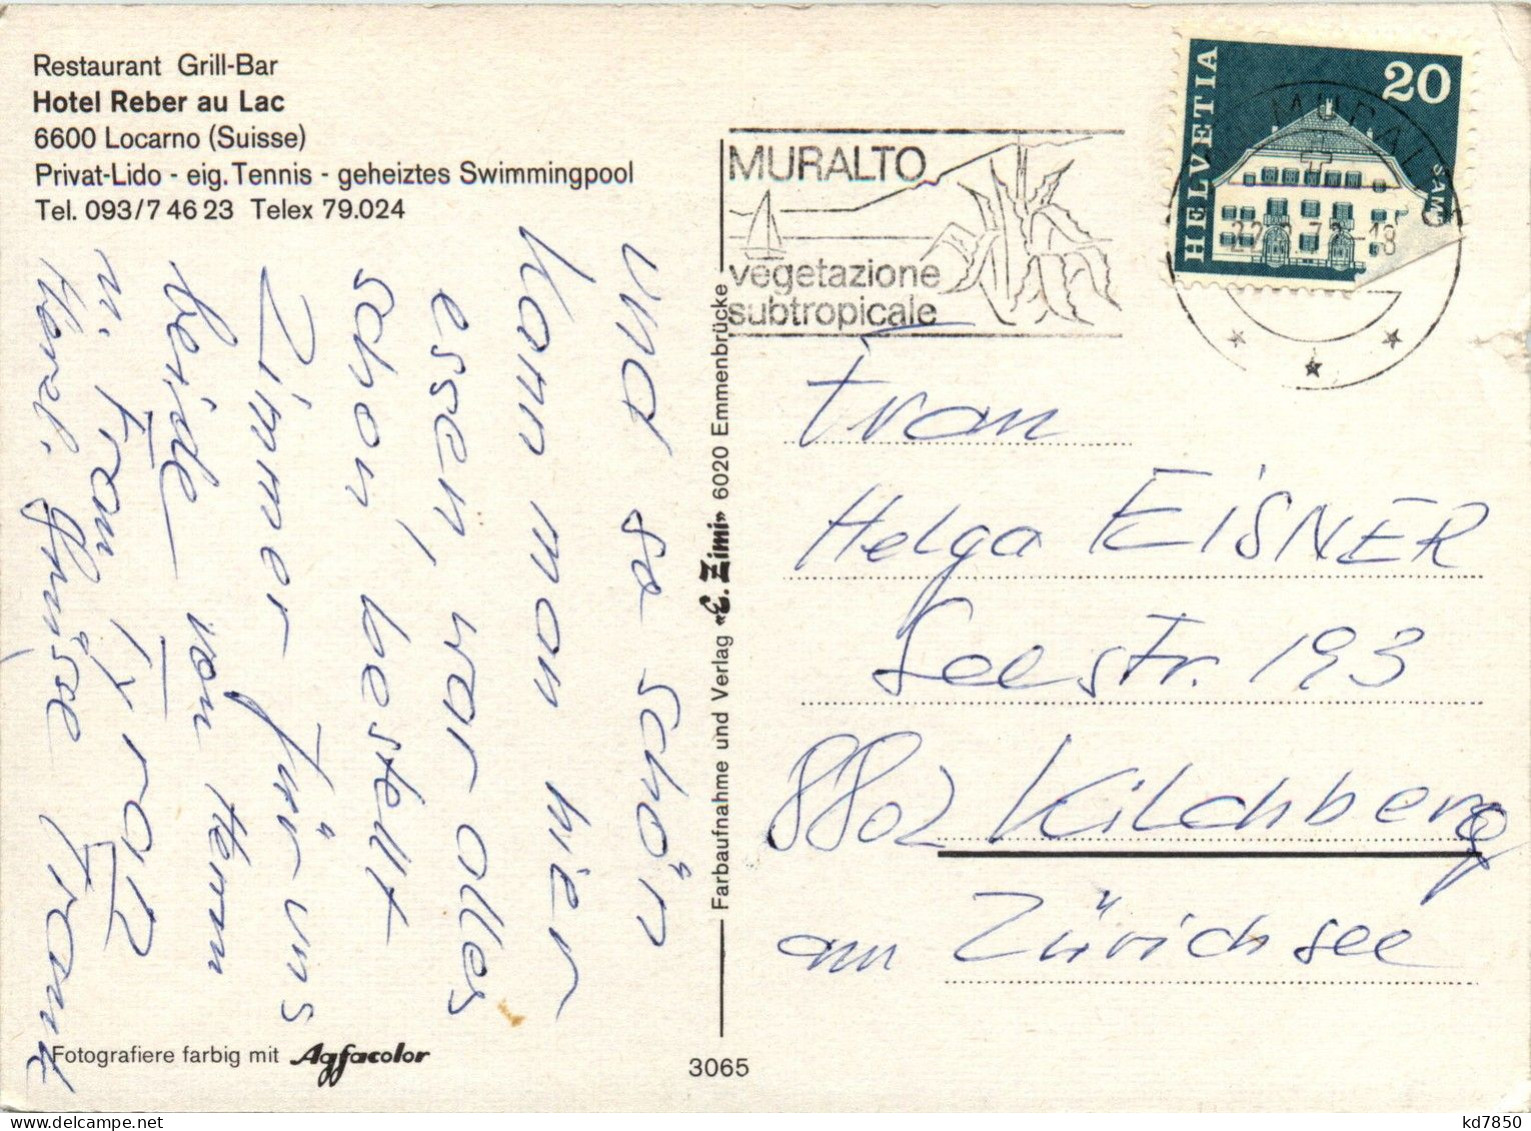 Restaurant Grill-Bar
Hotel Reber au Lac
6600 Locarno (Suisse)
Privat-Lido - eig. Tennis - geheiztes Swimmingpool
Tel. 093/7 46 23 Telex 79.024
und so schön
kann man hier
essen, war alles
schon bestellt
Zimmer für uns
beide von Herrn
u. Frau
Herzl. Grüsse Frank
Fotografiere farbig mit Agfacolor
Farbaufnahme und Verlag «E. Zimi» 6020 Emmenbrücke
3065
MURALTO
vegetazione
subtropicale
HELVETIA
20
Frau
Helga EISNER
Seestr. 193
8802 Kilchberg
am Zürichsee
kd7850